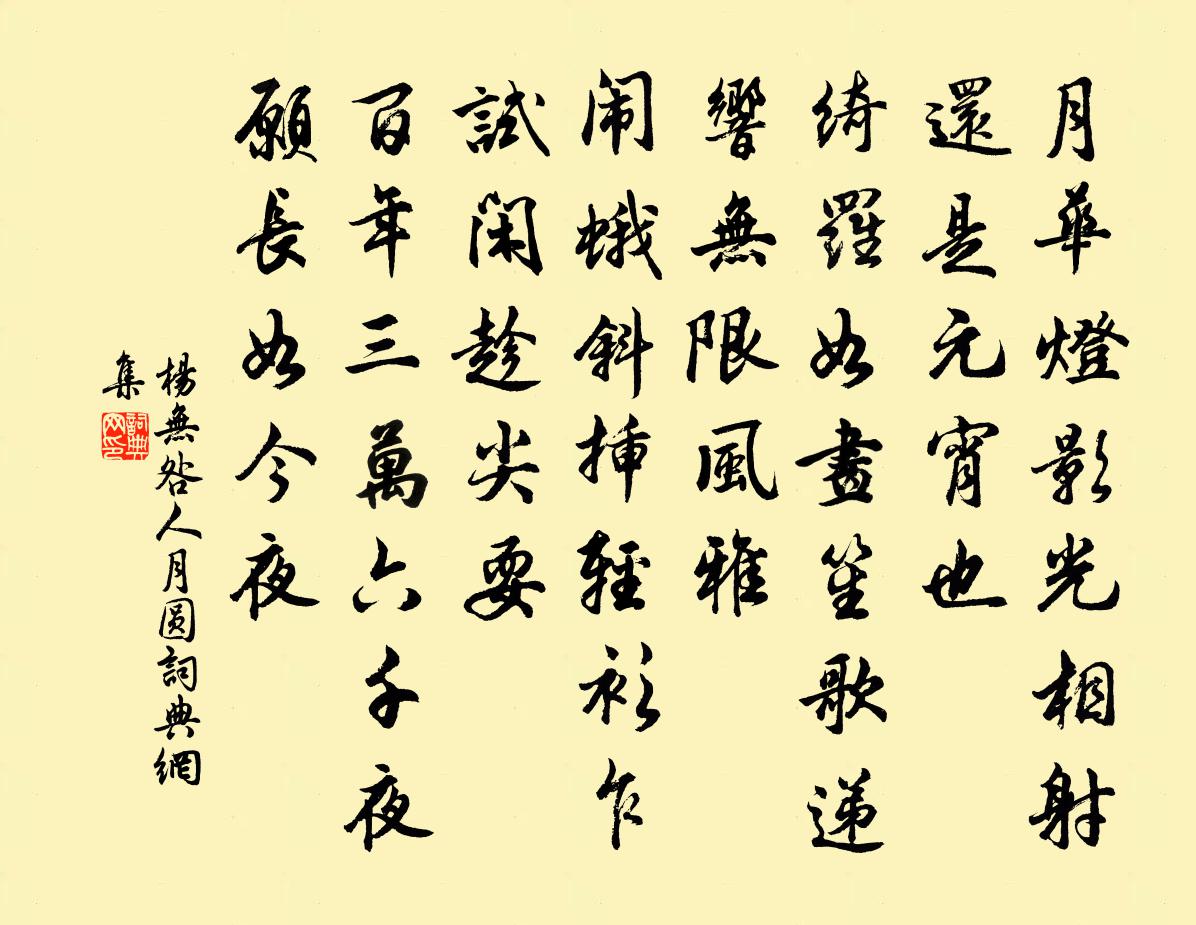 月華燈影光相射
還是元宵也
綺羅如畫笙歌递
響無限風雅
闹蛾斜插輕衫乍
試閑趁尖耍
百年三萬六千夜
願長如今夜
楊無咎人月圆詞典網
集
詞典网印